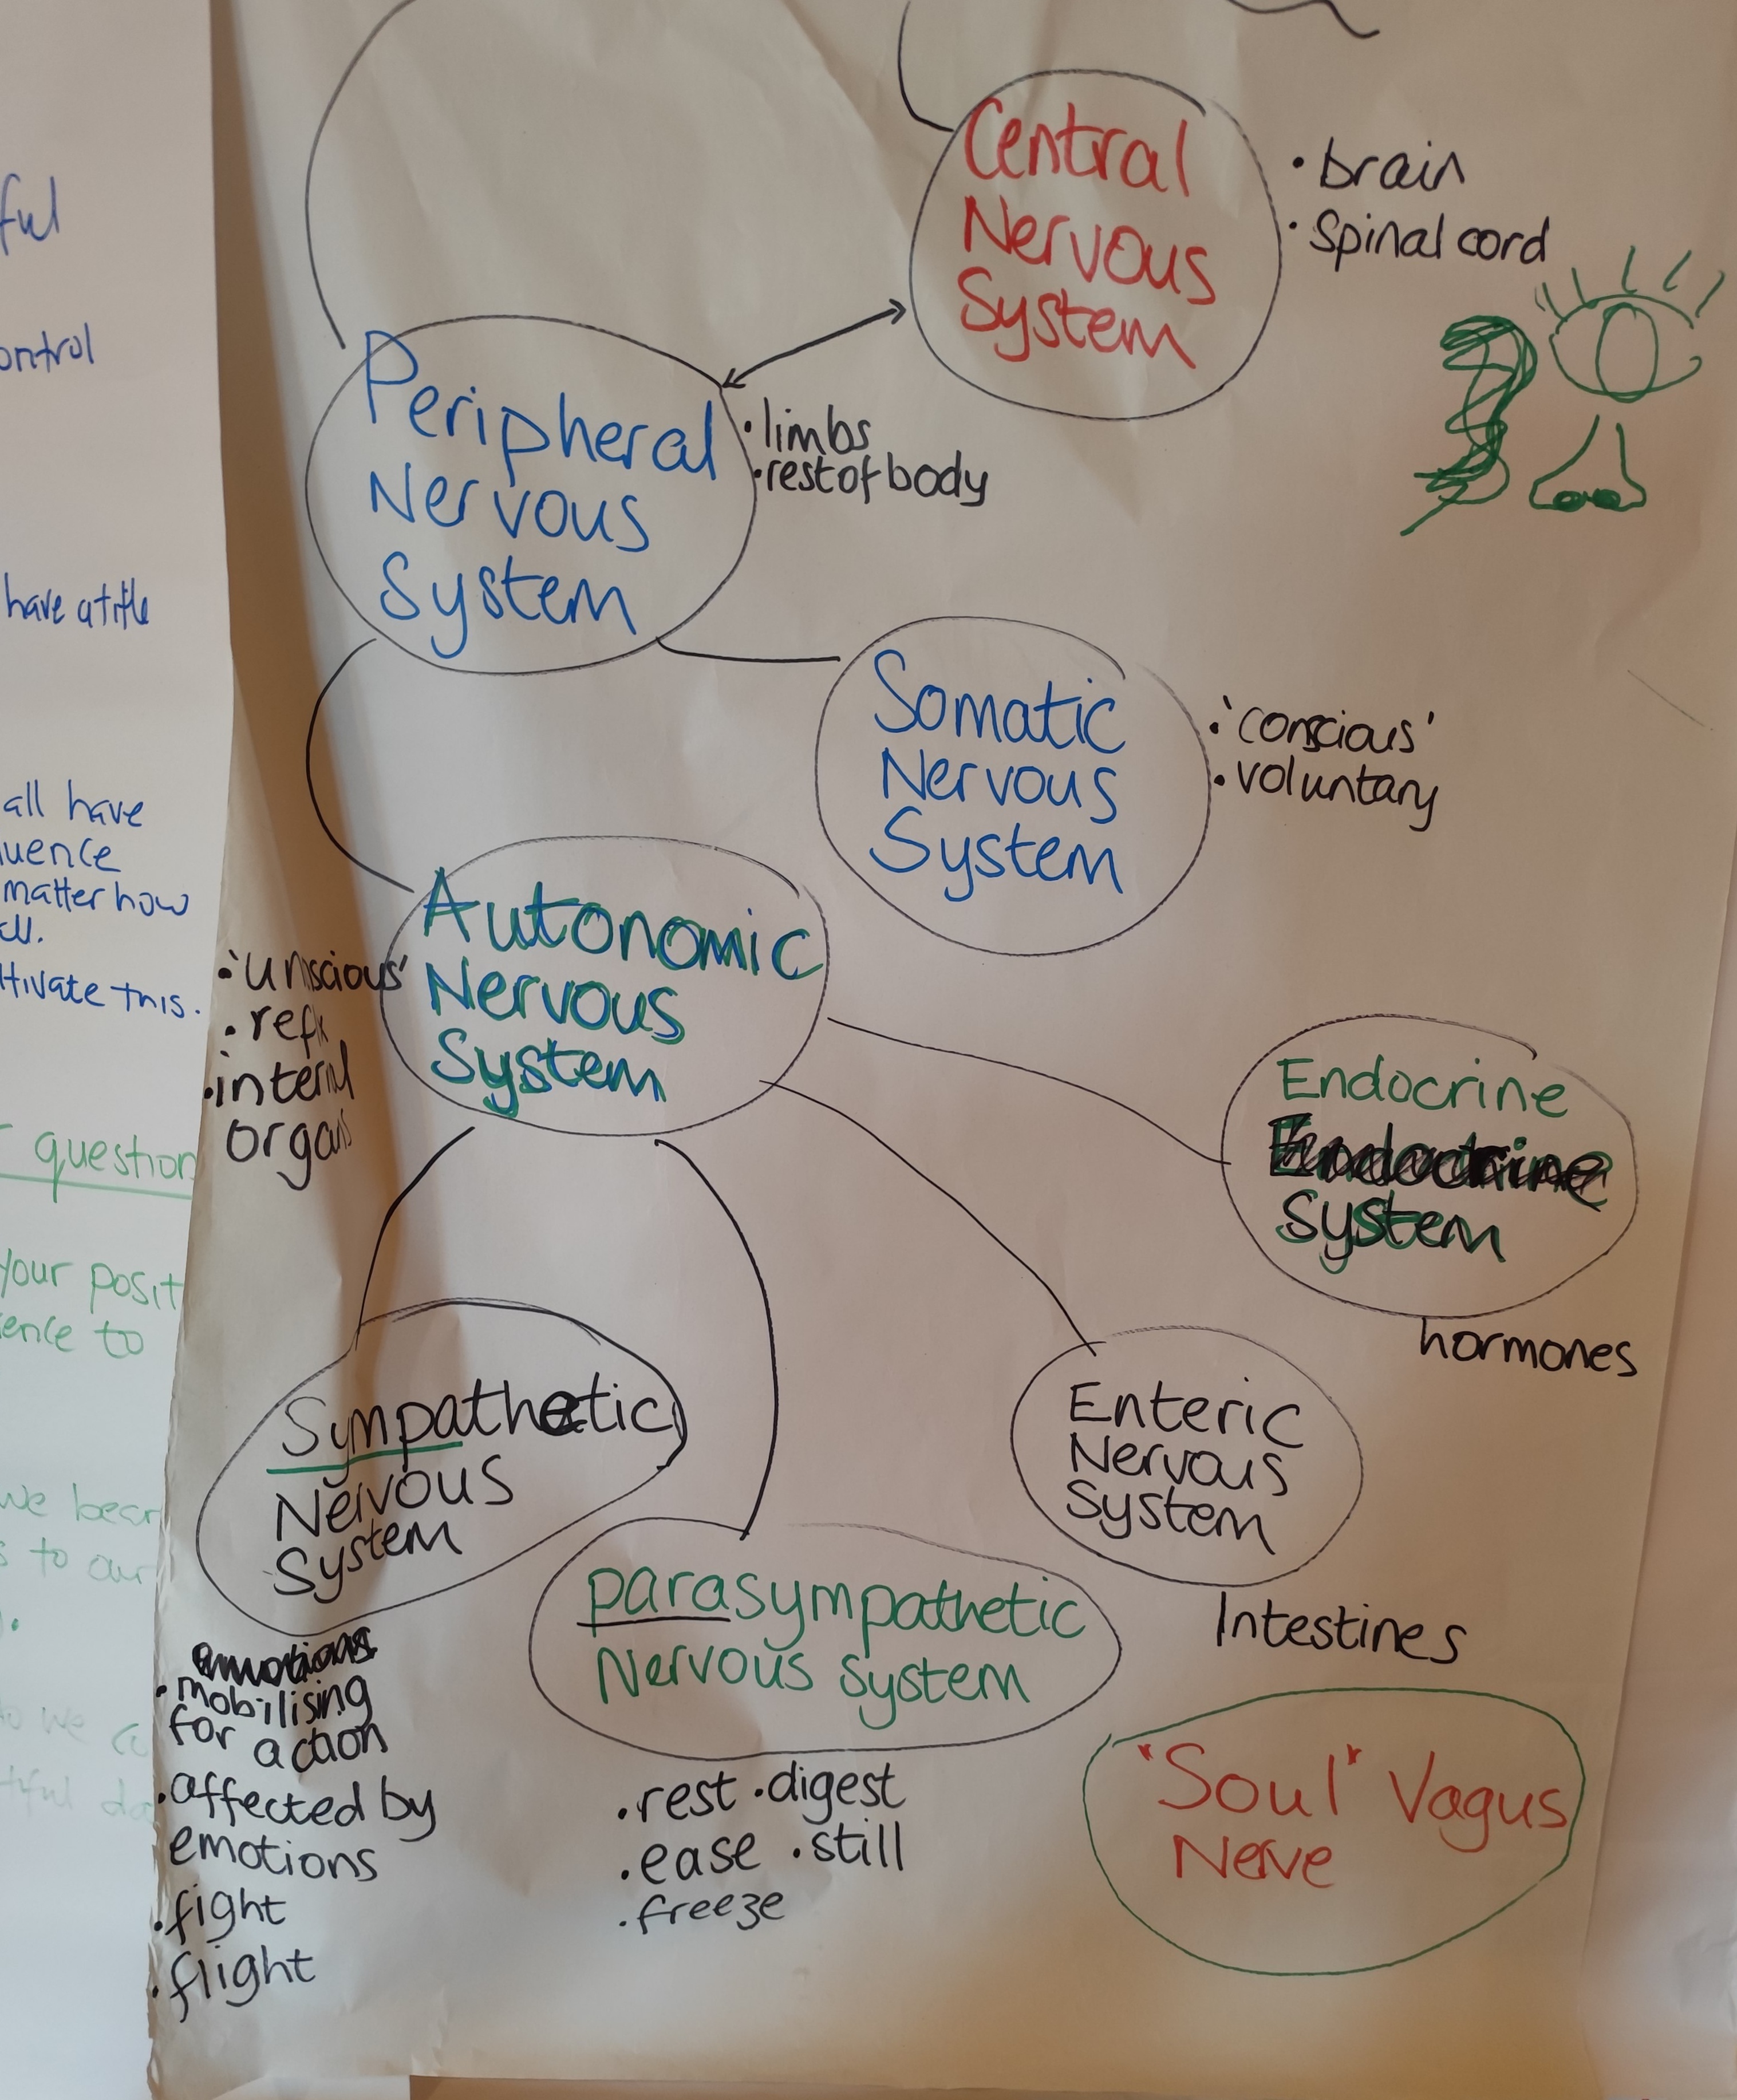 Central
Nervous
System
• brain
• Spinal cord
Peripheral
Nervous
System
• limbs
• rest of body
Somatic
Nervous
System
• 'conscious'
• voluntary
Autonomic
Nervous
System
• internal
organs
Endocrine
Endocrine
System
hormones
Sympathetic
Nervous
System
emotions
• mobilising
for action
• affected by
emotions
• fight
• flight
parasympathetic
Nervous System
• rest • digest
• ease • still
• freeze
Enteric
Nervous
System
Intestines
"Soul" Vagus
Nerve
ful
ontrol
have a title
all have
uence
matter how
ll.
ltivate this.
question
your posit
ence to
we bear
s to our